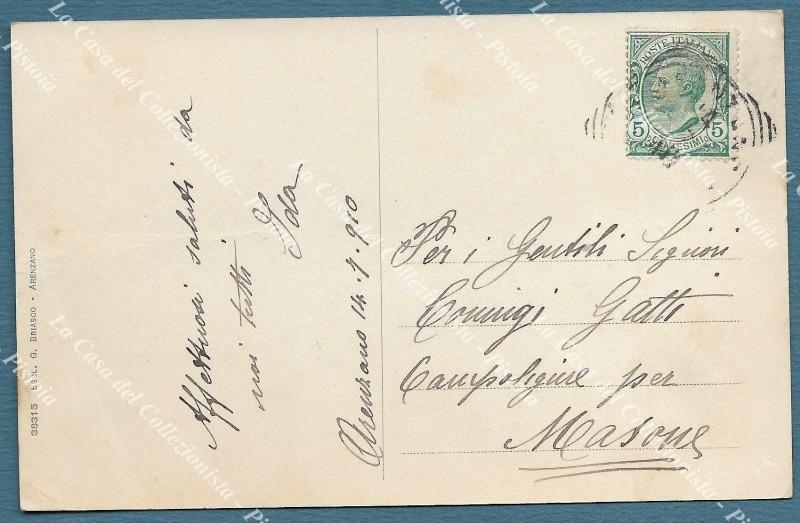 Affettuosi saluti da
noi tutti Ida
Arenzano 14.7.910
Per i Gentili Signori
Coniugi Gatti
Campoligure per
Masone
POSTE ITALIANE
5 5
CENTESIMI
38315 Esel. G. BRIASCO - ARENZANO
La Casa del Collezionista - Pistoia